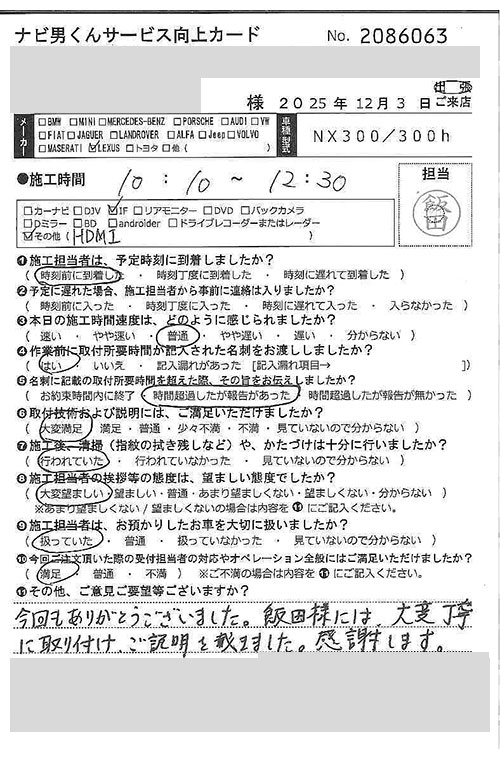 ナビ男くんサービス向上カード No. 2086063
出張
様 2025年12月3日 ご来店
メーカー
□BMW □MINI □MERCEDES-BENZ □PORSCHE □AUDI □VW
□FIAT □JAGUER □LANDROVER □ALFA □Jeep □VOLVO
□MASERATI ☑LEXUS □トヨタ □他 ( )
車種・型式
NX300/300h
●施工時間 10:10~12:30
担当
飯田
□カーナビ □DJV ☑IF □リアモニター □DVD □バックカメラ
□Dミラー □BD □androider □ドライブレコーダーまたはレーダー
☑その他 (HDMI )
❶施工担当者は、予定時刻に到着しましたか?
( 時刻前に到着した ・ 時刻丁度に到着した ・ 時刻に遅れて到着した )
❷予定に遅れた場合、施工担当者から事前に連絡は入りましたか?
( 時刻前に入った ・ 時刻丁度に入った ・ 時刻に遅れて入った ・ 入らなかった )
❸本日の施工時間速度は、どのように感じられましたか?
( 速い ・ やや速い ・ 普通 ・ やや遅い ・ 遅い ・ 分からない )
❹作業前に取付所要時間が記入された名刺をお渡ししましたか?
( はい ・ いいえ ・ 記入漏れがあった [記入漏れ項目→ ])
❺名刺に記載の取付所要時間を超えた際、その旨をお伝えしましたか?
( お約束時間内に終了 ・ 時間超過したが報告があった ・ 時間超過したが報告が無かった )
❻取付技術および説明には、ご満足いただけましたか?
( 大変満足 ・ 満足 ・ 普通 ・ 少々不満 ・ 不満 ・ 見ていないので分からない )
❼施工後、清掃(指紋の拭き残しなど)や、かたづけは十分に行いましたか?
( 行われていた ・ 行われていなかった ・ 見ていないので分からない )
❽施工担当者の挨拶等の態度は、望ましい態度でしたか?
( 大変望ましい・望ましい・普通・あまり望ましくない・望ましくない・分からない )
※あまり望ましくない/望ましくないの場合は内容を⓫にご記入ください。
❾施工担当者は、お預かりしたお車を大切に扱いましたか?
( 扱っていた ・ 普通 ・ 扱っていなかった ・ 見ていないので分からない )
❿今回ご注文頂いた際の受付担当者の対応やオペレーション全般にはご満足いただけましたか?
( 満足 ・ 普通 ・ 不満 ) ※ご不満の場合は内容を⓫にご記入ください。
⓫その他、ご意見ご要望等ございますか?
今回もありがとうございました。飯田様には、大変丁寧
に取り付け、ご説明を戴きました。感謝します。